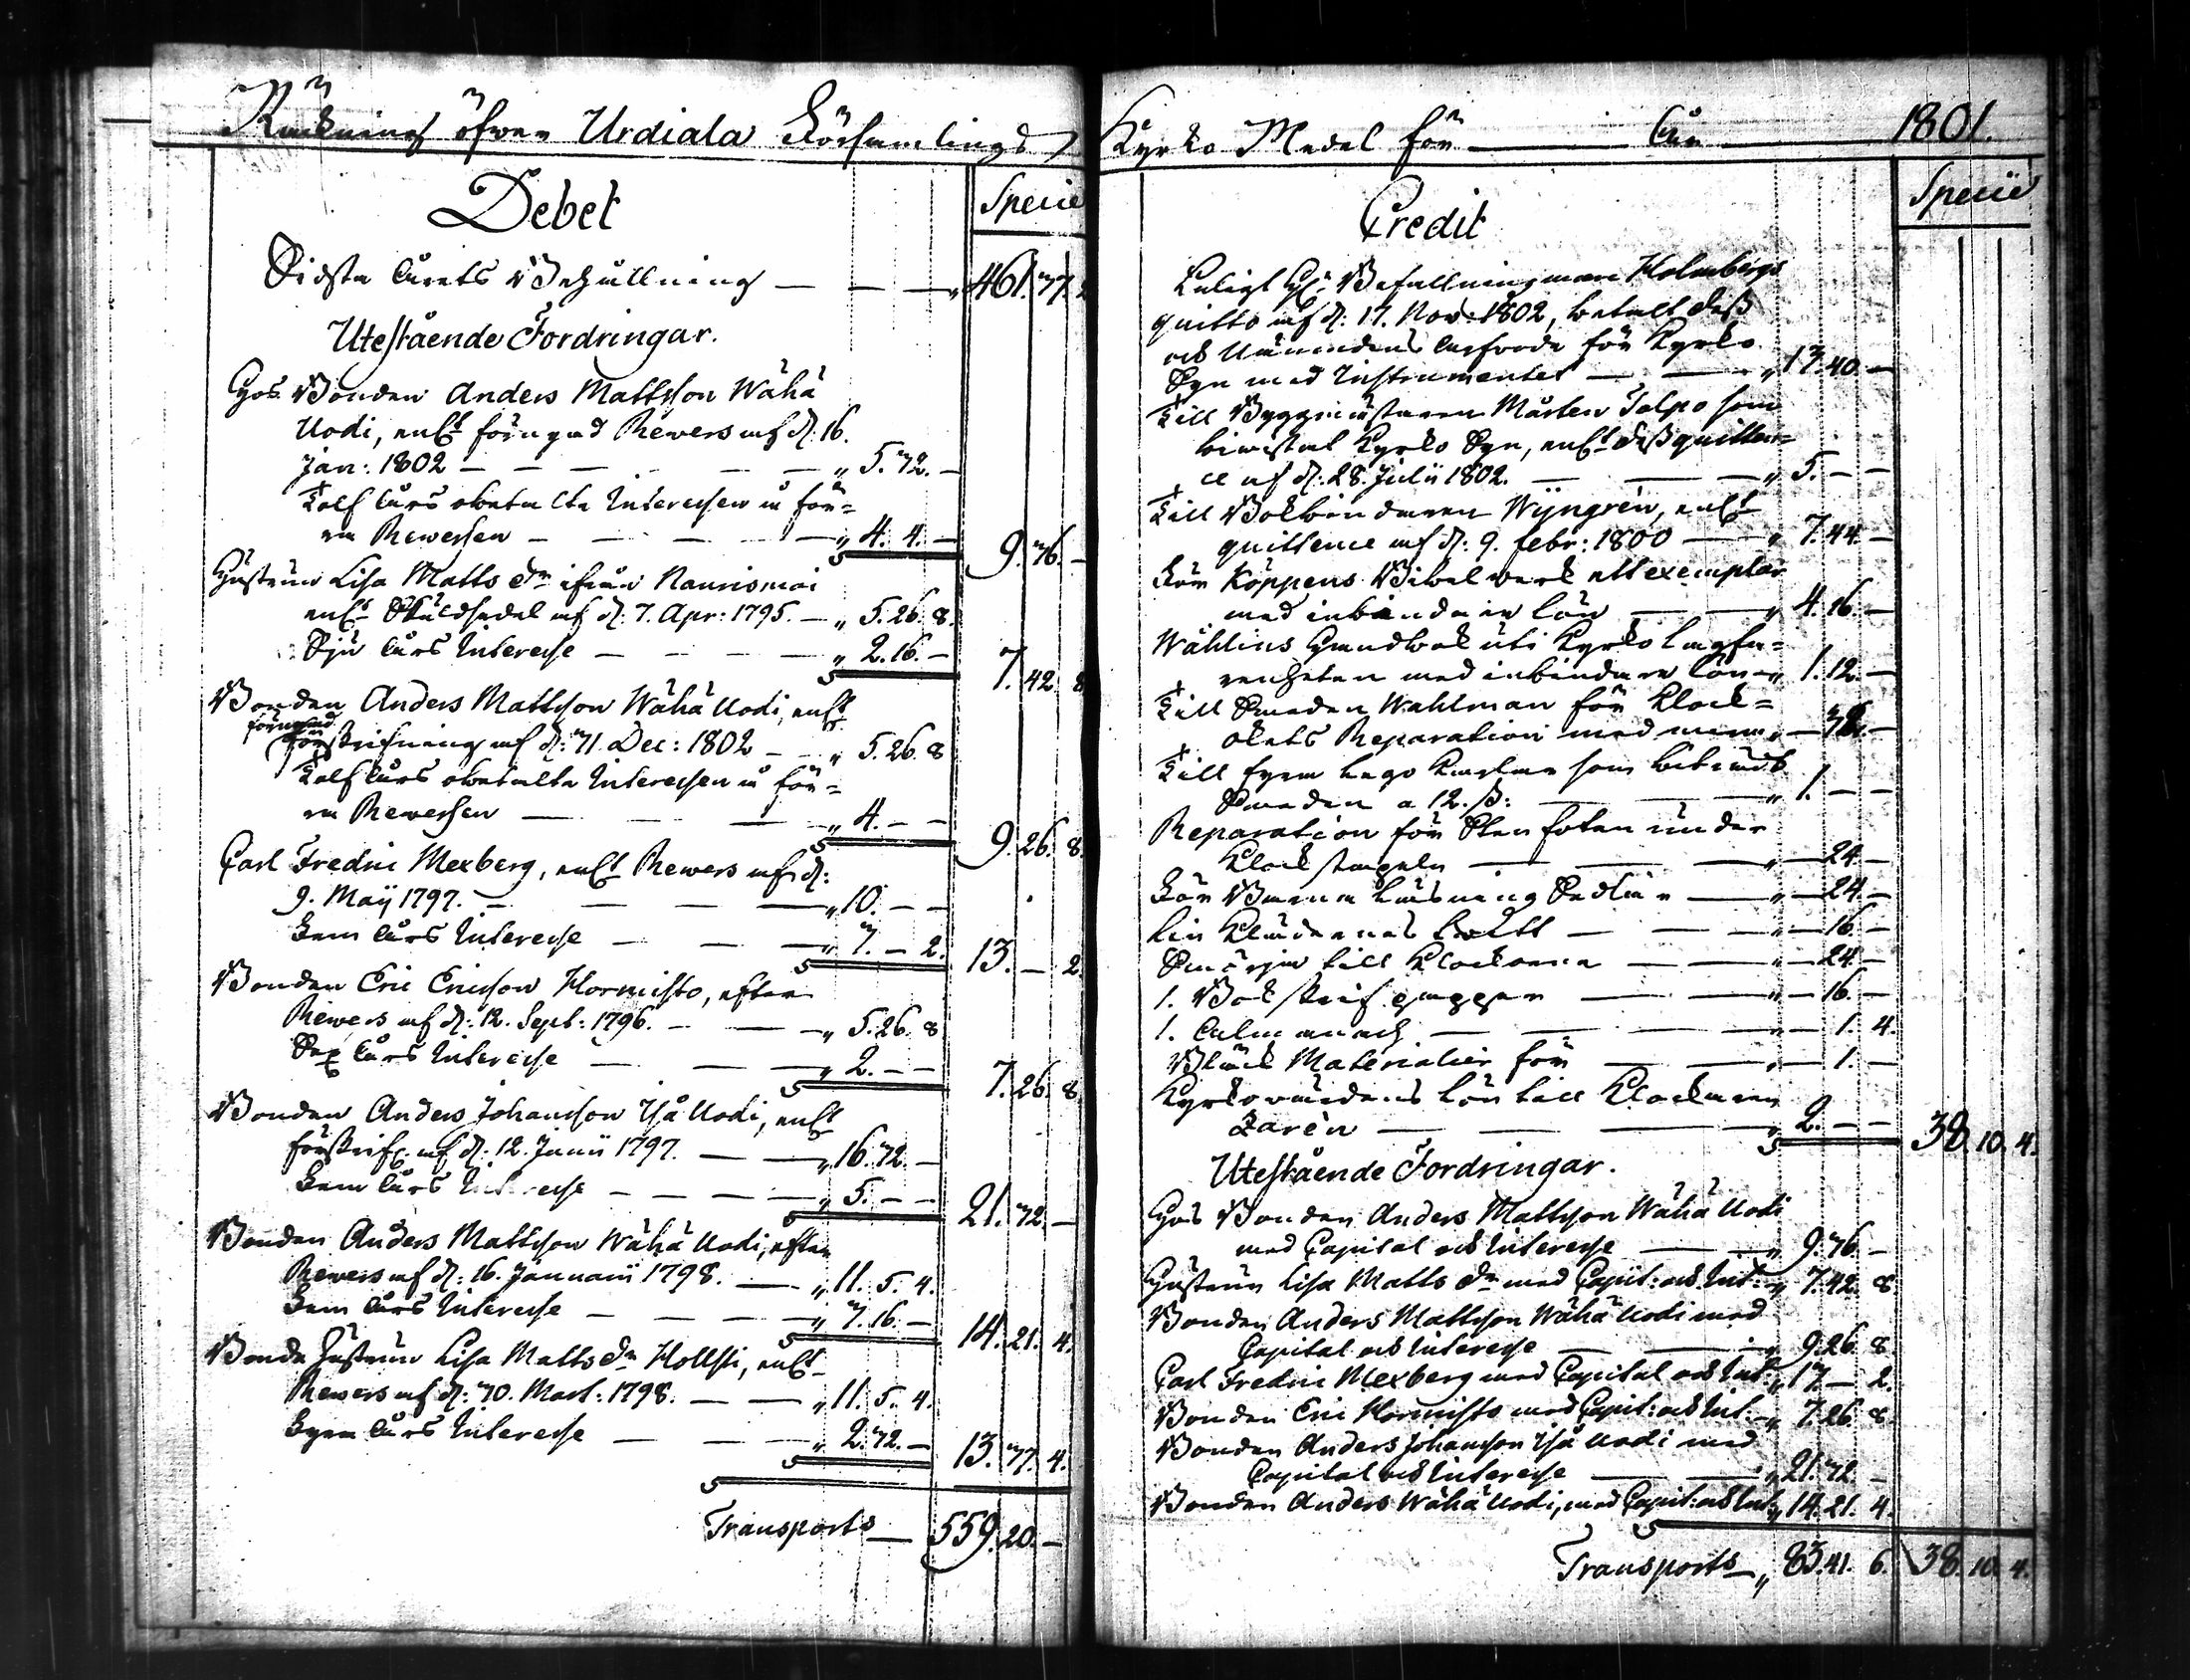 Räkning öfwer Urdiala Församlings
Debet
Specie
Sidsta Årets Behållning — — — „ 461. 37. 2
Utestående Fordringar.
Hos Bonden Anders Mattsson Wähä
Uodi, enl:t förnyad Revers af d: 16.
Jan: 1802 — — — — — „ 5. 32. —
Tolf Års obetalta Interessen å för=
ra Reversen — — — — „ 4. 4. — 9. 36. —
Hustrun Lisa Matts d:r ifrån Naurismäi
enl:t Skuldsedel af d: 7. Apr: 1795. — „ 5. 26. 8.
Sju Års Interesse — — — — „ 2. 16. — 7. 42. 8
Bonden Anders Mattsson Wähä Uodi, enl:t
förnyad
förskrifning af d: 31. Dec: 1802 — — „ 5. 26. 8
Tolf Års obetalta Interessen å för=
ra Reversen — — — „ 4. — — 9. 26. 8.
Carl Fredric Mexberg, enl:t Revers af d:
9. Maij 1797. — — — — „ 10. — —
Fem Års Interesse — — — „ 3. — 2. 13. — 2.
Bonden Eric Ericsson Hormisto, efter
Revers af d: 12. Sept: 1796. — — „ 5. 26. 8
Sex Års Interesse — — — „ 2. — — 7. 26. 8
Bonden Anders Johansson Iså Uodi, enl:t
förskrifn: af d: 12. Junii 1797. — — „ 16. 32. —
Fem Års Interesse — — — — „ 5. — — 21. 32. —
Bonden Anders Mattsson Wähä Uodi, efter
Revers af d: 16. Januarii 1798. — „ 11. 5. 4.
Fem Års Interesse — — — — „ 3. 16. — 14. 21. 4.
Bonde Hustrun Lisa Matts d:r Hollsti, enl:t
Revers af d: 30. Mart: 1798. — — „ 11. 5. 4.
Fyra Års Interesse — — — „ 2. 32. — 13. 37. 4.
Transports — 559. 20. —
Kyrko Medel för — År — 1801.
Credit
Specie
Enligt Befallningsman Holmbergs
quitto af d: 17. Nov: 1802, betalt dess
och Nämndens Arfvode för Kyrko
Syn med Instrumentet — — „ 13. 40. —
Till Byggmästaren Mårten Tolpo som
biwistat Kyrko Syn, enl:t dess quitten=
ce af d: 28. Julii 1802. — — — „ 5. — —
Till Bokbindaren Wijngrén, enl:t
quittence af d: 9. febr: 1800 — — „ 7. 44. —
För Köppens Bibelwerk ett exemplar
med inbindare lön — — „ 4. 16. —
Wåhlins Handbok uti Kyrko Lagfa=
renheten med inbindare lön — „ 1. 12. —
Till Smeden Wahlman för Klock=
okets Reparation med mera „ — 38. —
Till fyra Lego Karlar som biträdt
Smeden a 12. ß: — — — „ 1. — —
Reparation för Stenfoten under
Klockstapeln — — — „ — 24. —
För Barna Läsning Sedlar — „ — 24. —
Lin Klädernas twätt — — „ — 16. —
Smörja till Klockorna — — „ — 24. —
1. Bok skrif papper — — „ — 16. —
1. Calmanach — — — „ — 1. 4.
Bläck Materialier för — — „ — 1. —
Kyrkowärdens lön till Klockaren
Zarén — — — „ 2. — — 38. 10. 4.
Utestående Fordringar.
Hos Bonden Anders Mattsson Wähä Uodi
med Capital och Interesse — — „ 9. 36. —
Hustrun Lisa Matts d:r med Capit: och Int: „ 7. 42. 8.
Bonden Anders Mattsson Wähä Uodi med
Capital och Interesse — — „ 9. 26. 8.
Carl Fredric Mexberg med Capital och Int: „ 13. — 2.
Bonden Eric Hormisto med Capit: och Int: — „ 7. 26. 8.
Bonden Anders Johansson Iså Uodi med
Capital och Interesse — — „ 21. 32. —
Bonden Anders Wähä Uodi, med Capit: och Int: „ 14. 21. 4.
Transports — „ 83. 41. 6. 38. 10. 4.